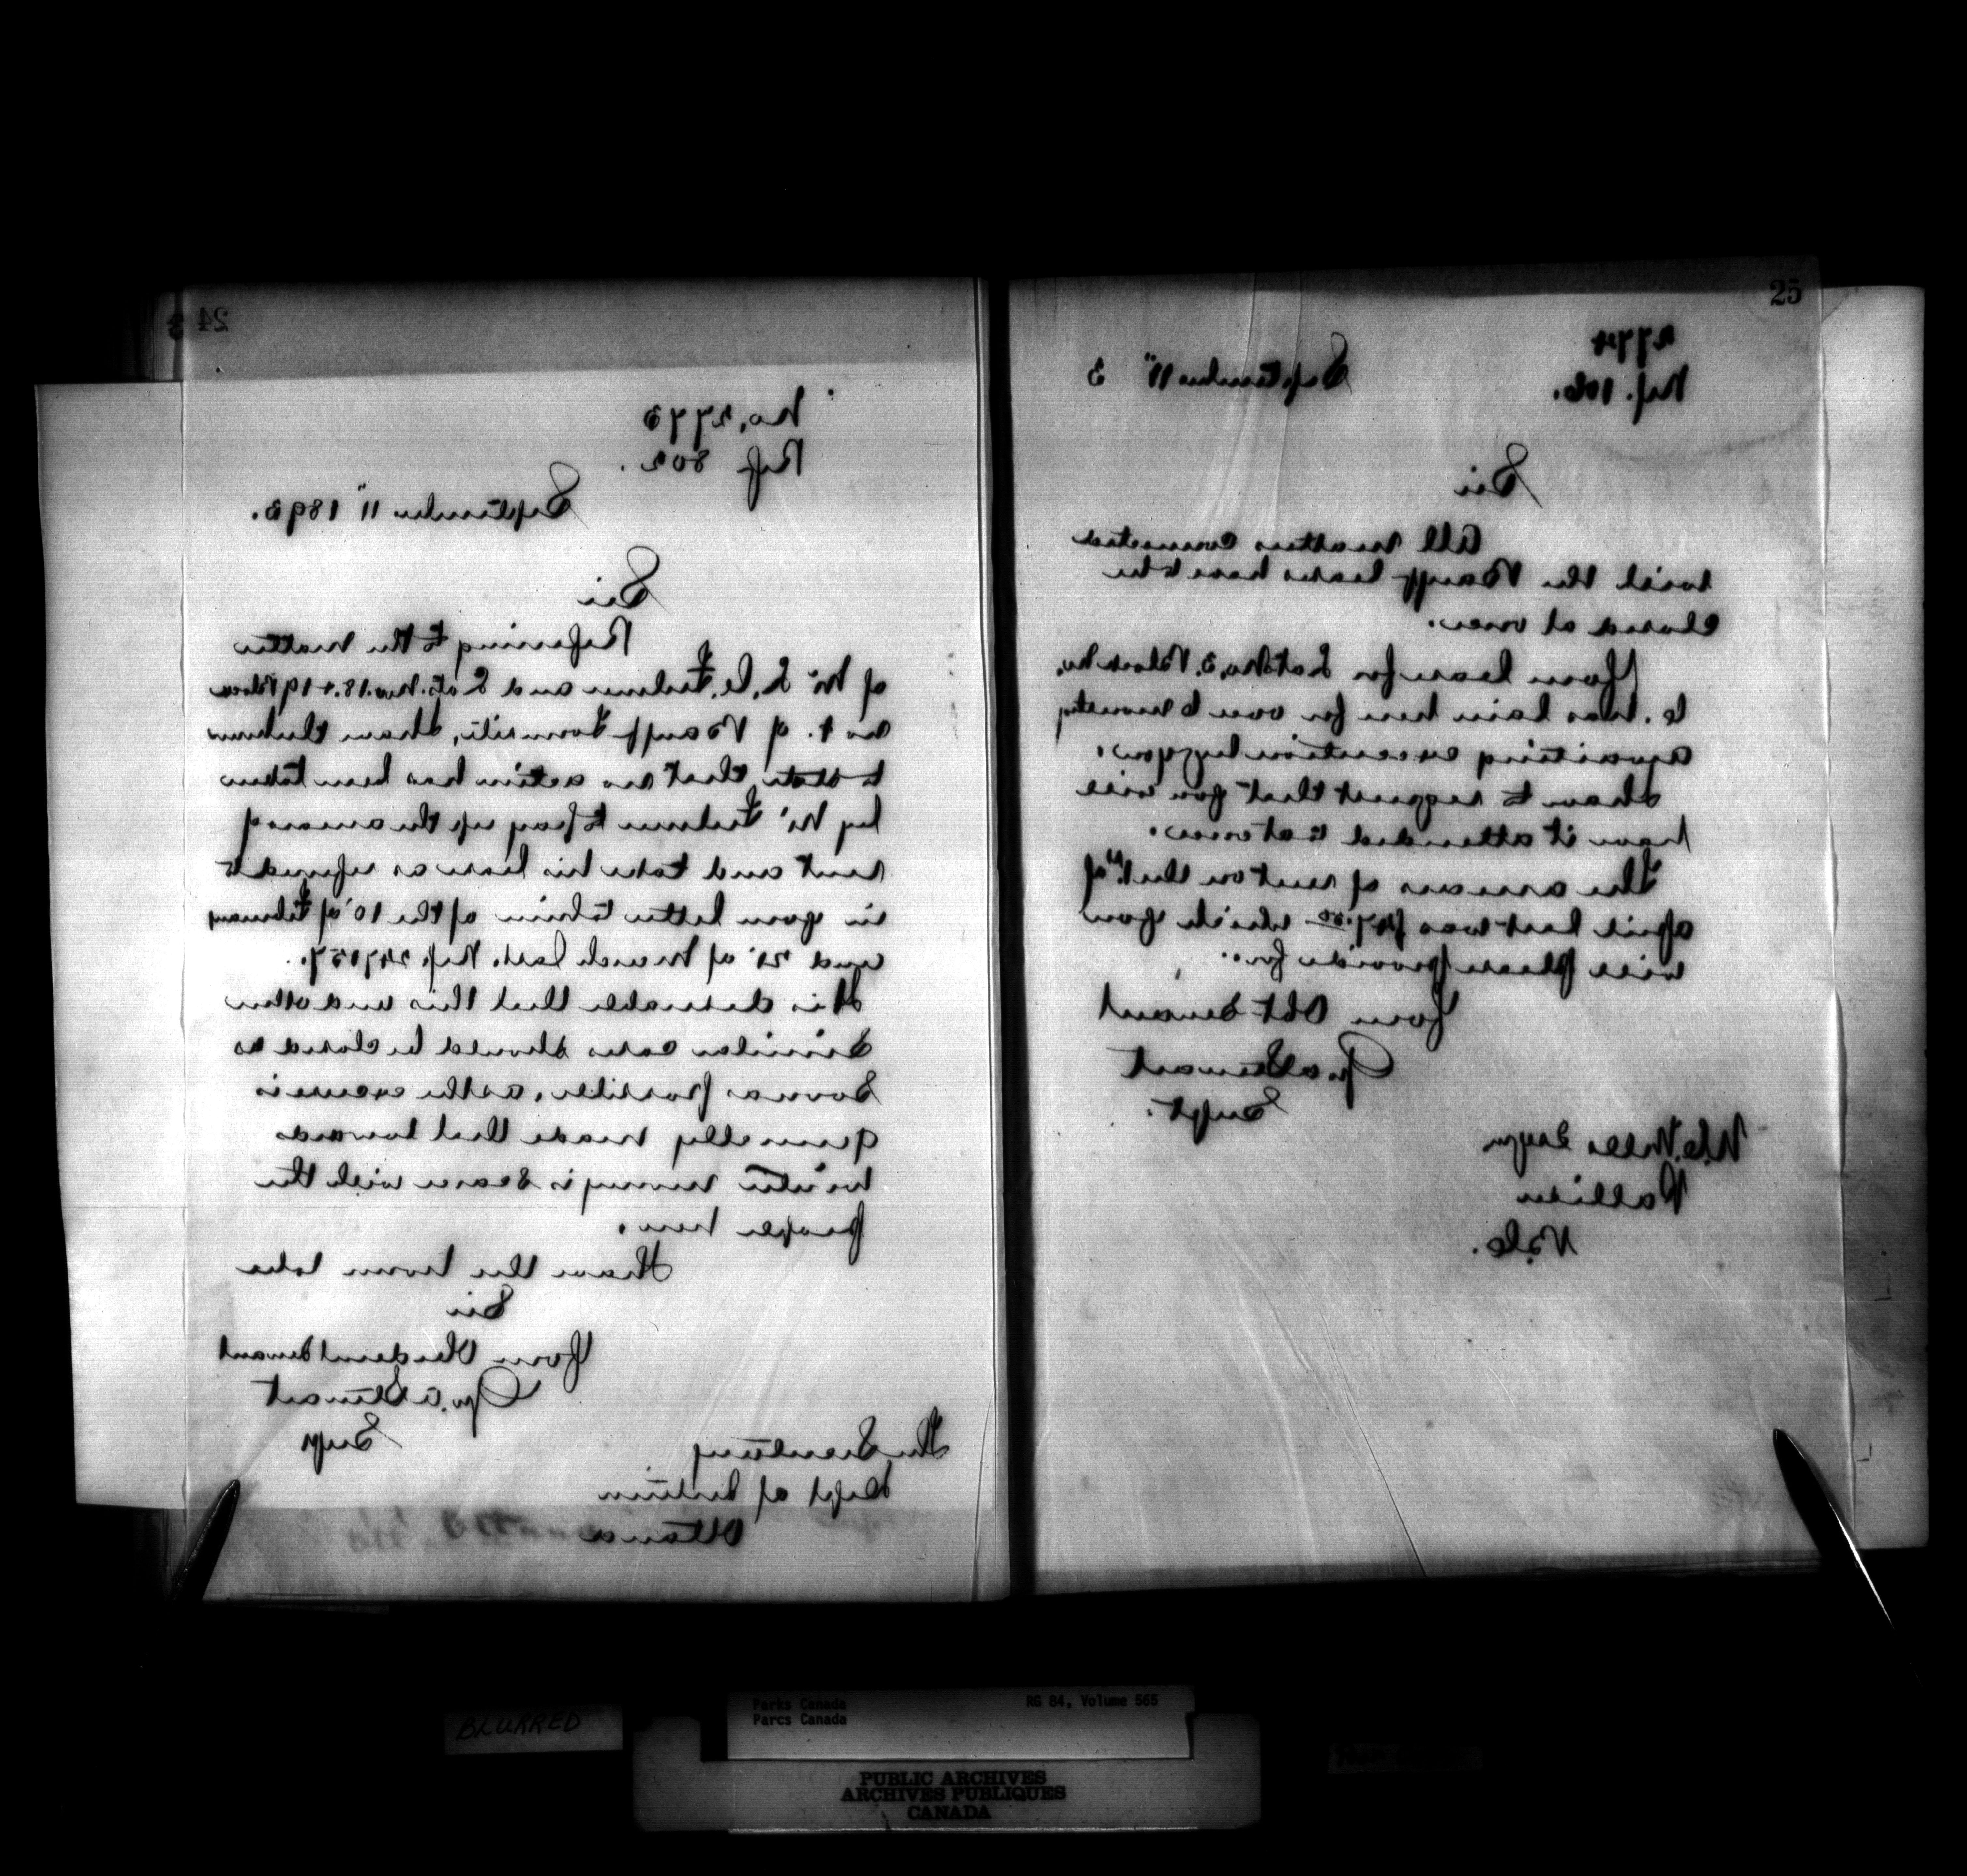 24
No. 2773
Ref 802.
September 11" 1893.
Sir
Referring to the matter
of Mr L. C. Fulmer and Lots. Nos. 18. & 19 Block
No 1. of Banff Townsite, I have the honor
to state, that no action has been taken
by Mr Fulmer to pay up the arrears of
rent and take his lease as referred to
in your letter to him of the 10" of February
and 21" of March last. Ref.
It is desirable that this and other
similar cases should be closed as
soon as possible, as the excuse is
generally made that towards
winter money is scarce with the
people here.
I have the honor to be
Sir
Your Obedient Servant
Geo. A Stewart
Supt
The Secretary
Dept of Interior
Ottawa
25
2774
Ref. 106.
September 11" 3
Sir
All matters connected
with the Banff leases have to be
closed at once.
Your lease for Lot No. 3. Block No.
6. has lain here for over 6 months
awaiting execution by you.
I have to request that you will
have it attended to at once.
The arrears of rent on the 1st of
April last was which you
will please provide for.
Your Obt Servant
Geo A Stewart
Supt.
Wells Esqr
Palliser
B.C.
BLURRED
Parks Canada
Parcs Canada
RG 84, Volume 565
PUBLIC ARCHIVES
ARCHIVES PUBLIQUES
CANADA